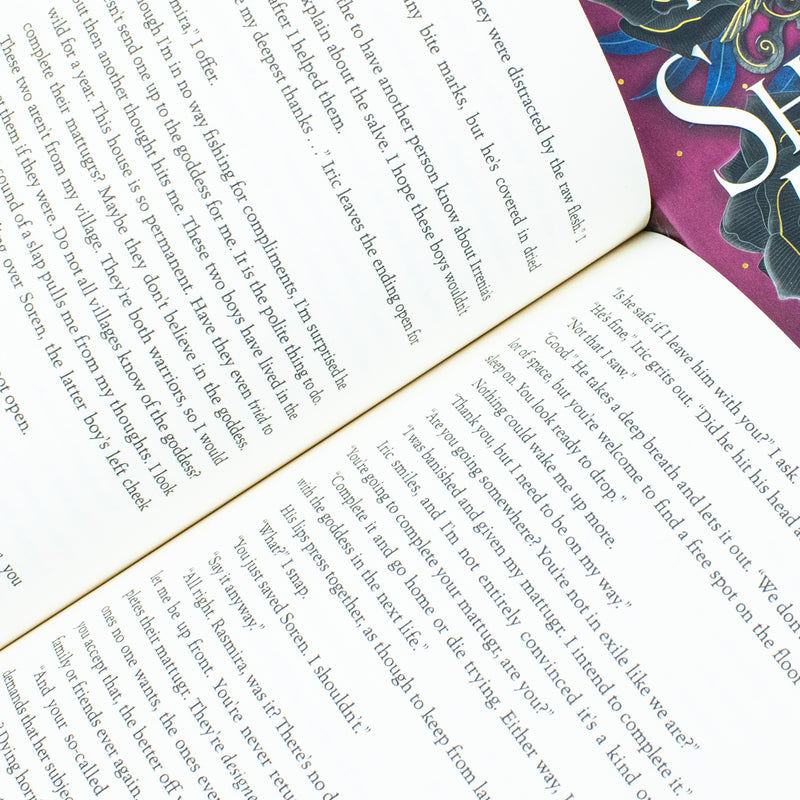 they were distracted by the raw flesh." I
my bite marks, but he's covered in dried
the to have another person know about Irrenia's
explain about the salve. I hope these boys wouldn't
after I helped them.
my deepest thanks . . ." Iric leaves the ending open for
mira," I offer.
though I'm in no way fishing for compliments, I'm surprised he
esn't send one up to the goddess for me. It is the polite thing to do.
but then another thought hits me. These two boys have lived in the
wild for a year. This house is so permanent. Have they even tried to
complete their mattugrs? Maybe they don't believe in the goddess.
These two aren't from my village. They're both warriors, so I would
them if they were. Do not all villages know of the goddess?
sound of a slap pulls me from my thoughts. I look
over Soren, the latter boy's left cheek
not open.
you
"Is he safe if I leave him with you?" I ask.
"He's fine," Iric grits out. "Did he hit his head
"Not that I saw."
"Good." He takes a deep breath and lets it out. "We don't
lot of space, but you're welcome to find a free spot on the floor
sleep on. You look ready to drop."
Nothing could wake me up more.
"Thank you, but I need to be on my way."
"Are you going somewhere? You're not in exile like we are?"
"I was banished and given my mattugr. I intend to complete it."
Iric smiles, and I'm not entirely convinced it's a kind
"You're going to complete your mattugr, are you?"
"Complete it and go home or die trying. Either way, I
with the goddess in the next life."
His lips press together, as though to keep from
"What?" I snap.
"You just saved Soren. I shouldn't."
"Say it anyway."
"All right. Rasmira, was it? There's no
let me be up front. You're never
pletes their mattugr. They're designed
ones no one wants, the ones
you accept that, the better off
family or friends ever again.
"And your so-called
demands that her
Dying
SH